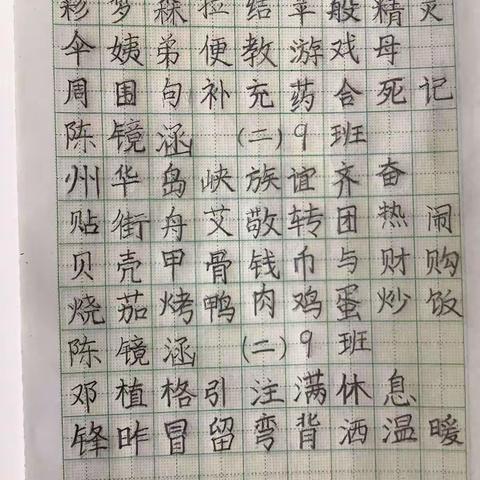 彩梦森拉结苹般精灵
伞姨弟便教游戏母
周围句补充药合死记
陈镜涵(二)9班
州华岛峡族谊齐奋
贴街舟艾敬转团热闹
贝壳甲骨钱币与财购
烧茄烤鸭肉鸡蛋炒饭
陈镜涵(二)9班
邓植格引注满休息
锋昨冒留弯背洒温暖